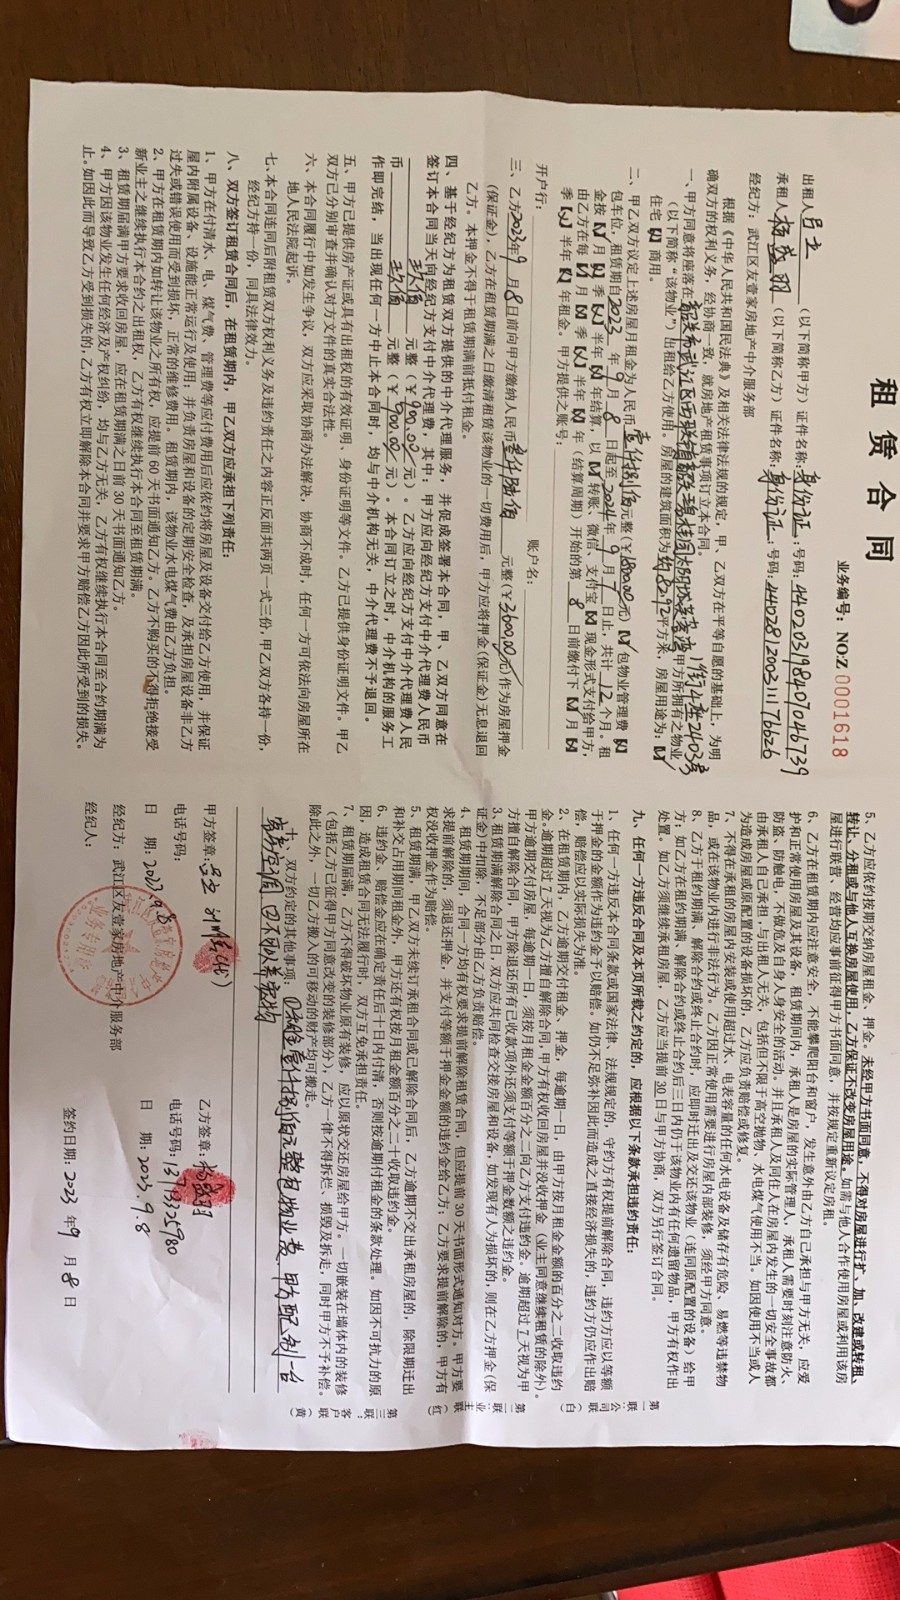 租 赁 合 同
业务编号：NO:Z 0001618
出租人 吕立 （以下简称甲方）证件名称：身份证：号码：440203198407046739
承租人 杨盛羽 （以下简称乙方）证件名称：身份证：号码：440281200311176626
经纪方：武江区友壹家房地产中介服务部
根据《中华人民共和国民法典》及相关法律法规的规定，甲、乙双方在平等自愿的基础上，为明
确双方的权利义务，经协商一致，就房地产租赁事项订立本合同。
一、甲方同意将座落在 韶关市武江区西联 碧桂园太阳城 1街4座2403号 甲方所拥有之物业
（以下简称“该物业”）出租给乙方使用。房屋的建筑面积为 约82.92 平方米，房屋用途为：
住宅 商用。
二、甲乙双方议定上述房屋月租金为人民币 壹仟捌佰 元整（￥1800.00元） 包物业管理费
包车位，租赁期自2023 年 9 月 8 日起至2024年 9 月 7 日止，共计 12 个月。租
金按 月 季 半年 年结算，以 转账、微信、支付宝 现金形式支付给甲方，
由乙方在每 月 季 半年 年（结算周期）开始的第 8 日前缴付下 月
季 半年 年租金。甲方提供之账号：
开户行： 账户名：
三、乙方2023年9月8日前向甲方缴纳人民币 叁仟陆佰 元整（￥3600.00元）作为房屋押金
（保证金），乙方在租赁期满之日缴清租赁该物业的一切费用后，甲方应将押金（保证金）无息退回
乙方。本押金不得于租赁期满前抵付租金。
四、基于经纪方为租赁双方提供的中介代理服务，并促成签署本合同，甲、乙双方同意在
签订本合同当天向经纪方支付中介代理费，其中：甲方应向经纪方支付中介代理费人民币
玖佰 元整（￥900.00元）。乙方应向经纪方支付中介代理费人民
币 玖佰 元整（￥900.00元）。本合同订立之时，中介机构的服务工
作即完结，当出现任何一方中止本合同时，均与中介机构无关，中介代理费不予退回。
五、甲方已提供房产证或具有出租权的有效证明、身份证明等文件。乙方已提供身份证明文件。甲乙
双方已分别审查并确认对方文件的真实合法性。
六、本合同履行中如发生争议，双方应采取协商办法解决，协商不成时，任何一方可依法向房屋所在
地人民法院起诉。
七、本合同连同后附租赁双方权利义务及违约责任之内容正反面共两页一式三份，甲乙双方各持一份，
经纪方持一份，同具法律效力。
八、双方签订租赁合同后，在租赁期内，甲乙双方应承担下列责任：
1、甲方在付清水、电、煤气费、管理费等应付费用后应依约将房屋及设备交付给乙方使用，并保证
屋内附属设备、设施能正常运行及使用，并负责房屋和设备的定期安全检查，及承担房屋设备非乙方
过失或错误使用而受到损坏，正常的维修费用。租赁期内，该物业水电煤气费由乙方负担。
2、甲方在租赁期内如转让该物业之所有权，应提前 60 天书面通知乙方。乙方不购买的不得拒绝接受
新业主之继续执行本合约之出租权，乙方有权继续执行本合同至租赁期满。
3、租赁期届满甲方要求收回房屋，应在租赁期满之日前 30 天书面通知乙方。
4、甲方因该物业发生任何经济及产权纠纷，均与乙方无关，乙方有权继续执行本合同至合约期满为
止。如因此而导致乙方受到损失的，乙方有权立即解除本合同并要求甲方赔偿乙方因此所受到的损失。
5、乙方应依约按期交纳房屋租金、押金。未经甲方书面同意，不得对房屋进行扩、加、改建或转租、
转让、分租或与他人互换房屋使用，乙方保证不改变房屋用途。如需与他人合作使用房屋或利用该房
屋进行联营、经营均应事前征得甲方书面同意，并按规定重新议定房租。
6、乙方在租赁期内应注意安全，不能攀爬阳台和窗户，发生意外由乙方自己承担与甲方无关，应爱
护和正常使用房屋及其设备，租赁期间内，承租人是房屋的实际管理人，承租人需要时刻注意防火、
防盗、防触电，不做危及自身人身安全的活动。并且承租人及同住人在房屋内发生的一切安全事故都
由承租人自己承担，与出租人无关，包括但不限于高空抛物、水电煤气使用不当。如因使用不当或人
为造成房屋或原配置的设备损坏的，乙方应负责赔偿或修复。
7、不得在承租的房屋内安装或使用超过水、电表容量的任何水电设备及储存有危险、易燃等违禁物
品，或在该物业内进行非法行为。乙方因正常使用需要进行房屋内部装修，须经甲方同意。
8、乙方于租约期满、解除合约或终止合约时，应即时迁出及交还该物业（连同原配置的设备）给甲
方；如乙方在租约期满，解除合约或终止合约后三日内仍于该物业内有任何遗留物品，甲方有权作出
处置。如乙方须继续承租房屋，乙方应当提前 30 日与甲方协商，双方另行签订合同。
九、任何一方违反合同及本页所载之约定的，应根据以下条款承担违约责任：
1、任何一方违反本合同条款或国家法律、法规规定的，守约方有权提前解除合同，违约方应以等额
于押金的金额作为违约金予以赔偿。如仍不足弥补因此而造成之直接经济损失的，违约方仍应作出赔
偿，赔偿应以实际损失为准。
2、在租赁期内，乙方逾期交付租金、押金，每逾期一日，由甲方按月租金金额的百分之二收取违约
金。逾期超过 7 天视为乙方擅自解除合同，甲方有权收回房屋并没收押金（业主同意继续租赁的除外）。
甲方逾期交付房屋，每逾期一日，须按月租金金额百分之二向乙方支付违约金。逾期超过 7 天视为甲
方擅自解除合同，甲方除退还所有已收款项外还须支付等额于押金数额之违约金。
3、租赁期满解除合同之日，双方应共同检查交接房屋和设备，如发现有人为损坏的，则在乙方押金（保
证金）中扣除，不足部分由乙方负责赔偿。
4、租赁期期间，合同一方均有权要求提前解除租赁合同，但应提前 30 天书面形式通知对方。甲方要
求提前解除的，须退还押金，并支付等额于押金金额的违约金给乙方；乙方要求提前解除的，甲方有
权没收押金作为赔偿。
5、租赁期满，甲乙双方未续订承租合同或已解除合同后，乙方逾期不交出承租房屋的，除限期迁出
和补交占用期间租金外，甲方还有权按月租金额百分之二十收取违约金。
6、违约金、赔偿金应在确定责任后十日内付清，否则按逾期付租金的条款处理。如因不可抗力的原
因，造成租赁合同无法履行时，双方互免承担责任。
7、租赁期届满，乙方不得破坏物业原有装修，应以原状交还房屋给甲方。一切嵌装在墙体内的装修
（包括乙方已征得甲方同意改变的装修部分），乙方一律不得拆烂、损毁及拆走，同时甲方不予补偿。
除此之外，一切乙方搬入的可移动的财产均可搬走。
十、双方约定的其他事项： 壹仟捌佰元整包物业费、甲方配制一台
甲方签章：吕立 （代） 乙方签章：杨盛羽
电话号码： 电话号码：13713325980
日 期：2023.9.8 日 期：2023.9.8
经纪方：武江区友壹家房地产中介服务部
经纪人： 签约日期：2023 年 9 月 8 日
第一联：公司联（白）
第二联：业主联（红）
第三联：客户联（黄）